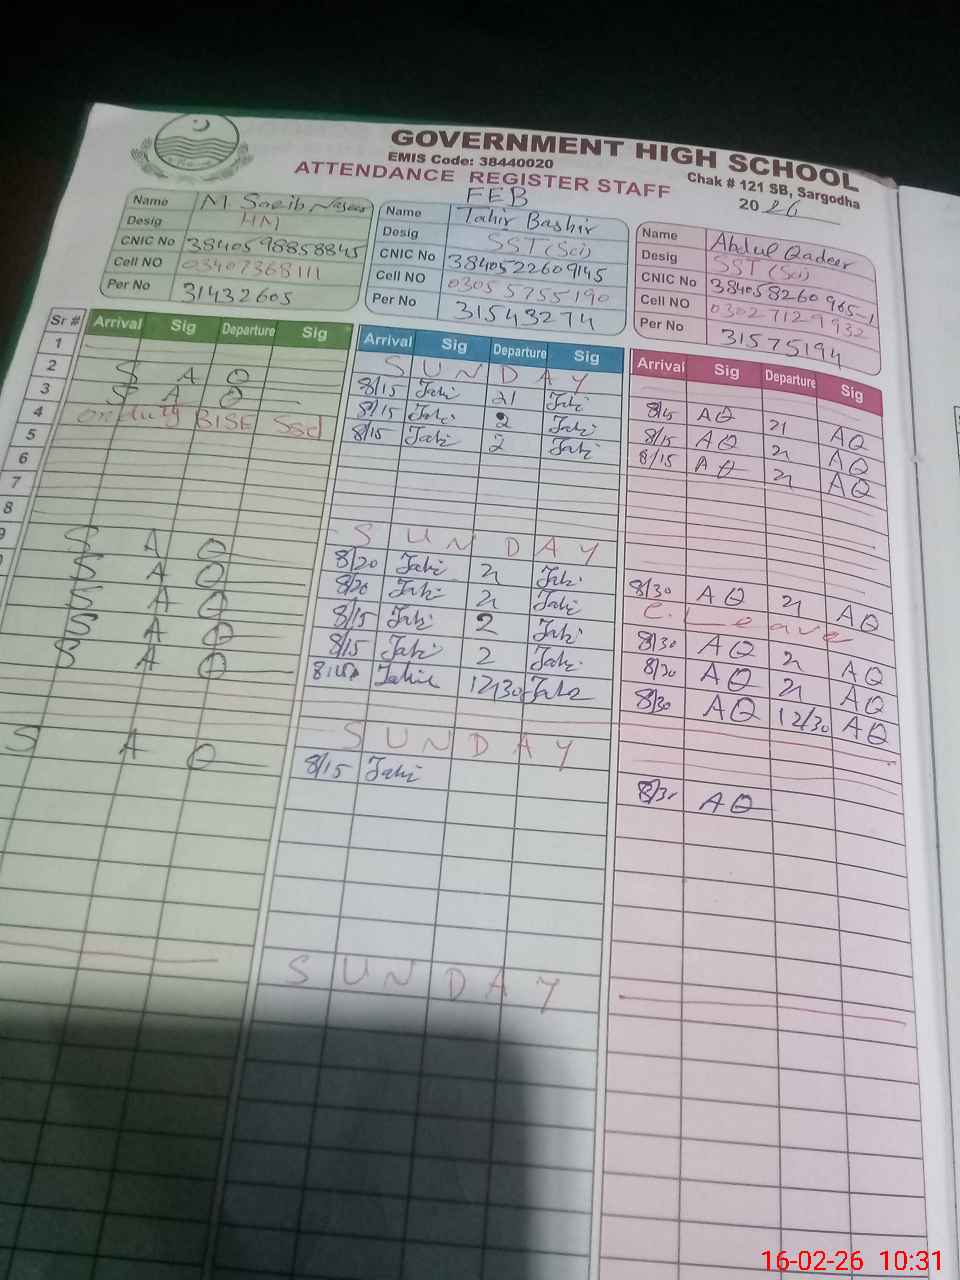 GOVERNMENT HIGH SCHOOL
EMIS Code: 38440020
Chak # 121 SB, Sargodha
ATTENDANCE REGISTER STAFF
FEB
20 26
Name M. Saeib
Desig HM
CNIC No 3840598858845
Cell NO 03407368111
Per No 31432605
Name Tahir Bashir
Desig SST (Sci)
CNIC No 3840522609145
Cell NO 03055755190
Per No 31543274
Name Abdul Qadeer
Desig SST (Sci)
CNIC No 384058260965-1
Cell NO 03027129932
Per No 31575194
Sr # Arrival Sig Departure Sig Arrival Sig Departure Sig Arrival Sig Departure Sig
1 SUNDAY
2 S A Q 8/15 21 8/15 AQ 21 AQ
3 S A Q 8/15 2 8/15 AQ AQ
4 on duty BISE Sgd 8/15 2 8/15 AQ AQ
5
6
7
8 SUNDAY
9 S A Q 8/20 8/30 AQ AQ
S A Q 8/20 C. Leave
S A Q 8/15 2 8/30 AQ AQ
S A Q 8/15 2 8/20 AQ AQ
S A Q 12/30 8/30 AQ 12/30 AQ
SUNDAY
S A Q 8/15 AQ
SUNDAY
16-02-26 10:31